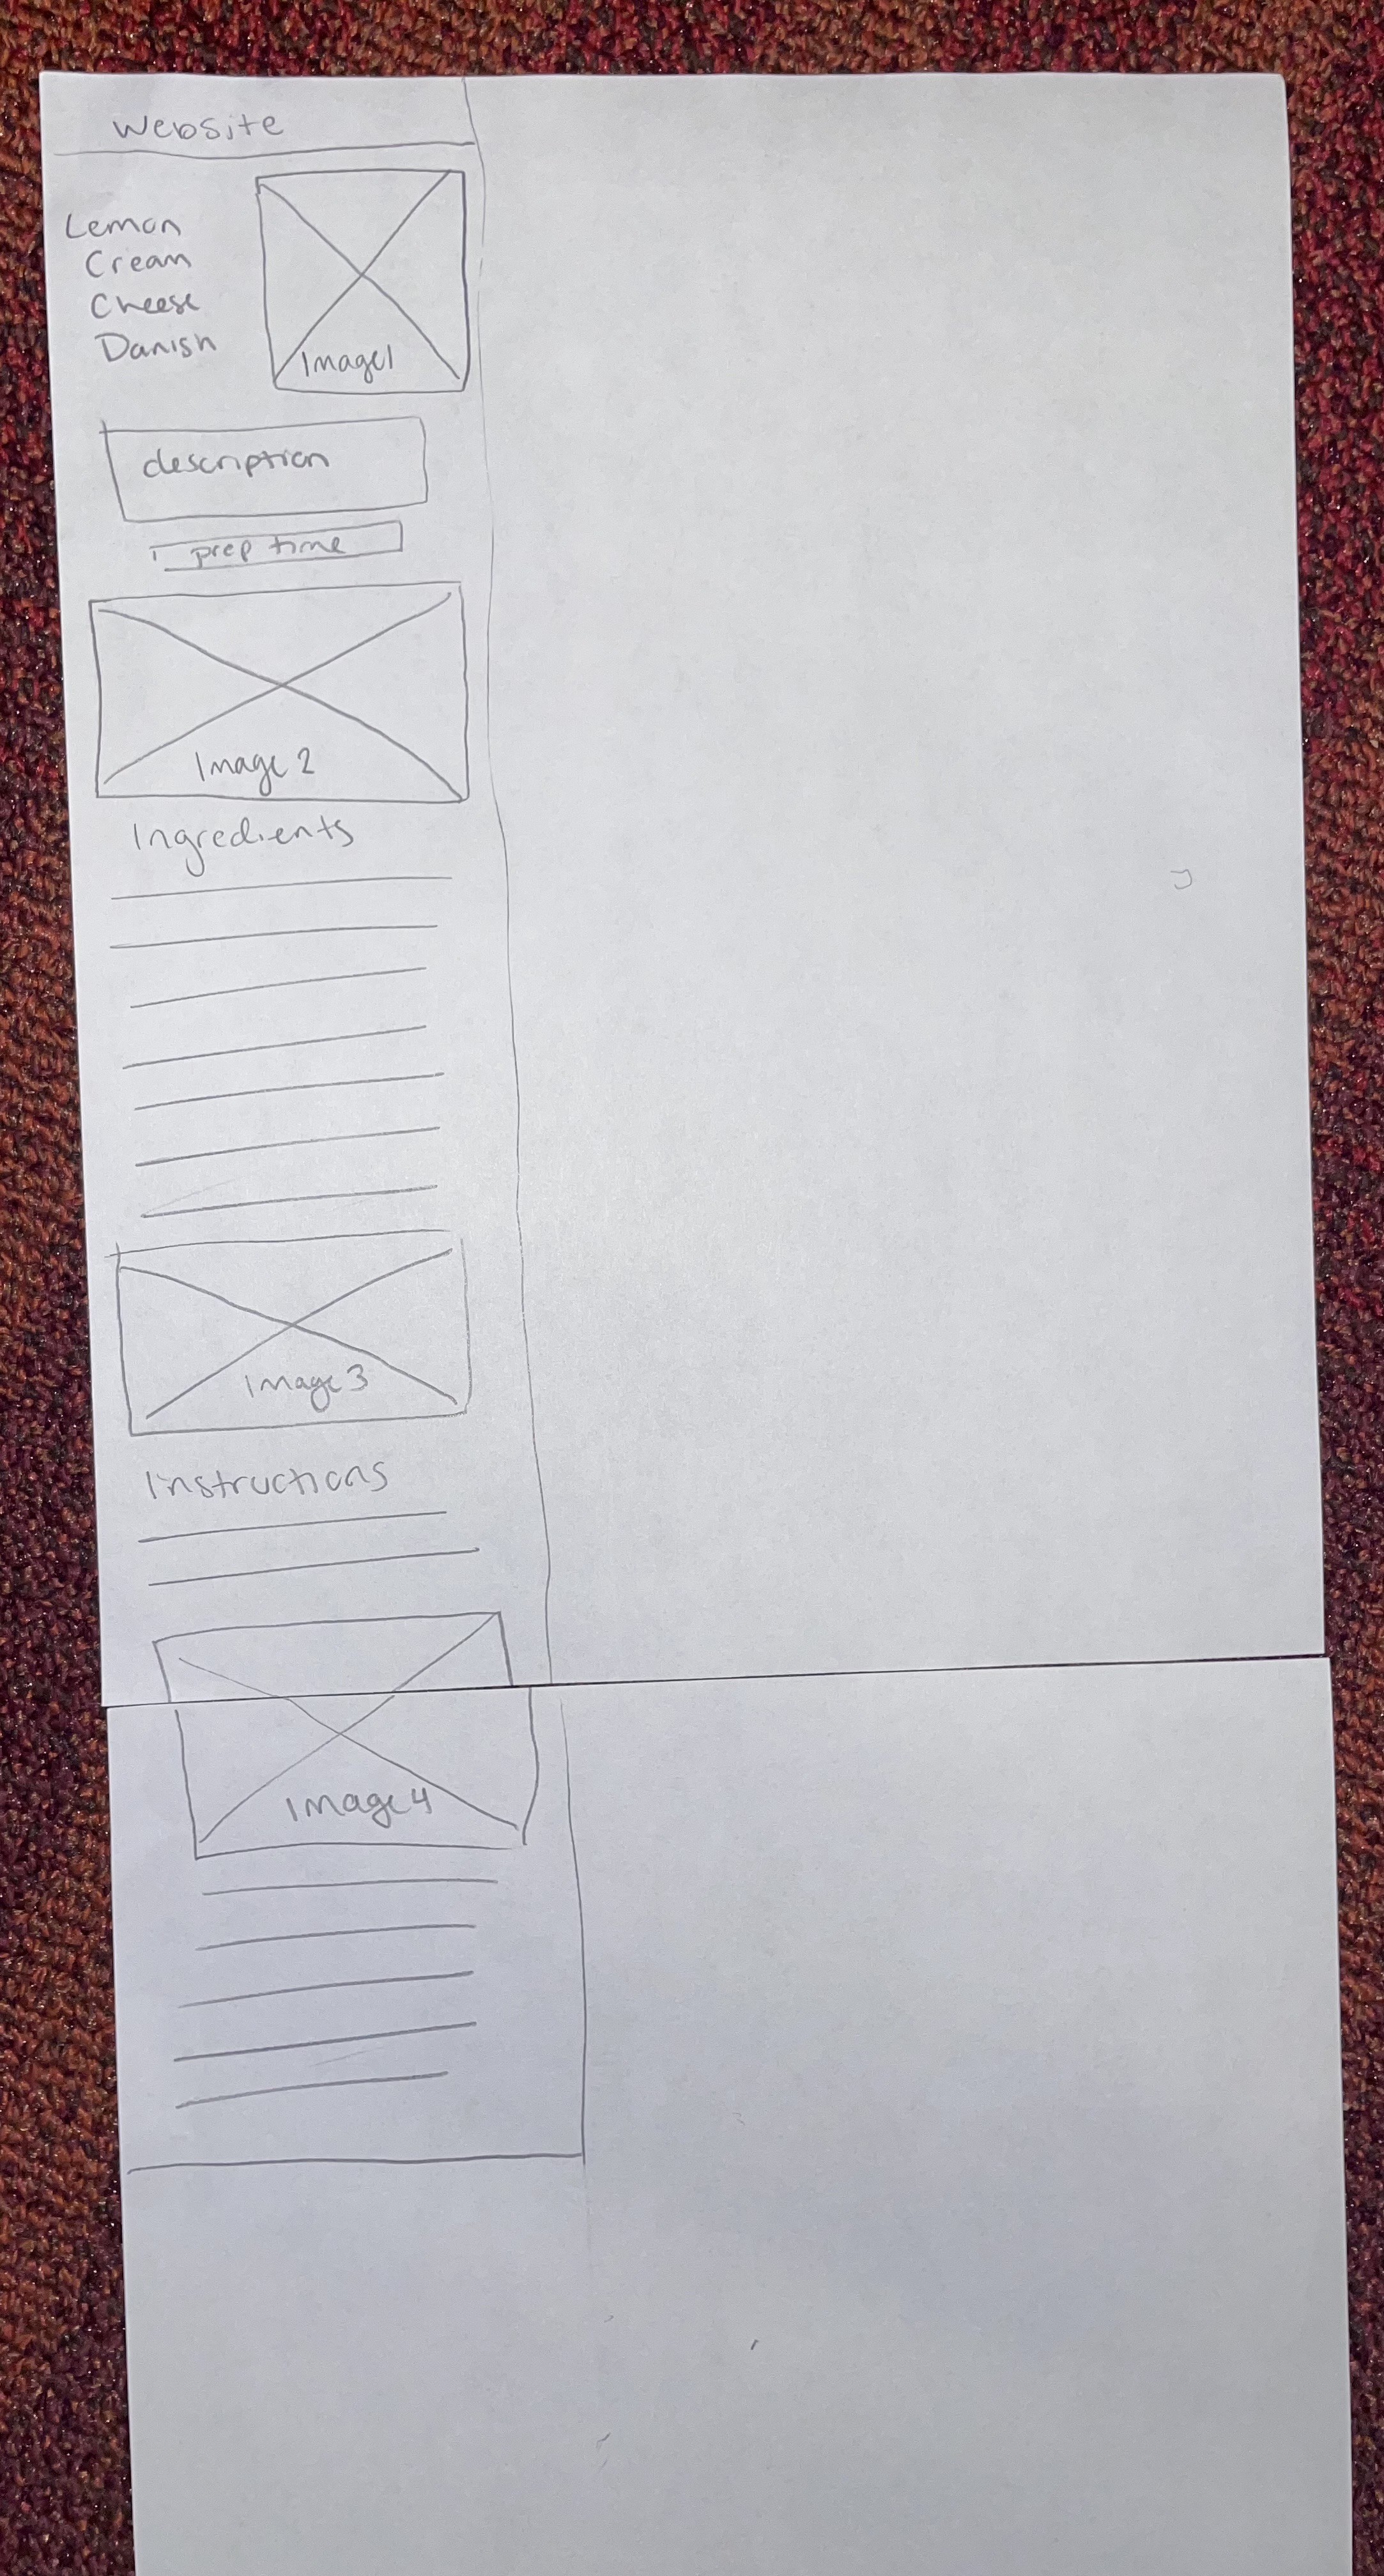 Website
Lemon
Cream
Cheese
Danish
Image1
description
prep time
Image 2
Ingredients
Image 3
Instructions
Image 4